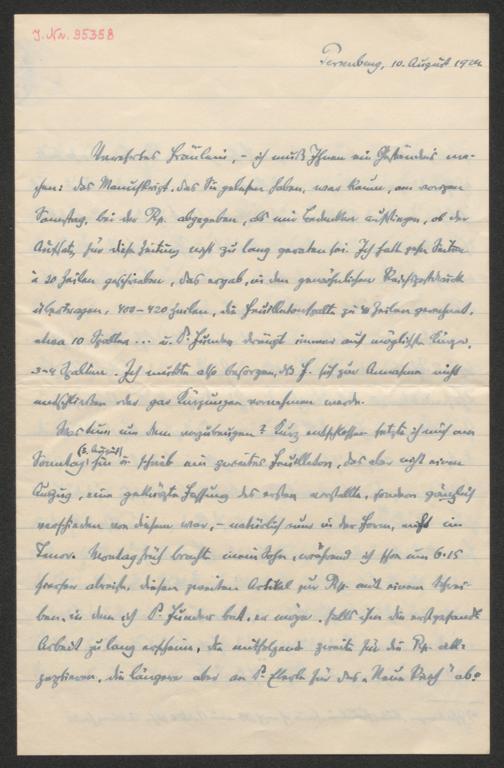 J. Nr. 95358
Persenbeug, 10. August 1924
Verehrtes Fräulein, – ich muß Ihnen ein Geständnis ma-
chen: das Manuskript, das Sie gelesen haben, war kaum, am vorigen
Samstag, bei der Rp. abgegeben, als mir Bedenken aufstiegen, ob der
Aufsatz für diese Zeitung nicht zu lang geraten sei. Ich hatte zehn Seiten
à 30 Zeilen geschrieben, das ergab, in den gewöhnlichen Reichspostdruck
übertragen, 400–420 Zeilen, die Feuilletonspalte zu 40 Zeilen gerechnet,
etwa 10 Spalten ... u. Dr. Funder drängt immer auf möglichste Kürze,
3–4 Spalten. Ich mußte also besorgen, daß F. sich zur Annahme nicht
entschließen oder gar Kürzungen vornehmen werde.
Was tun um dem vorzubeugen? Kurz entschlossen setzte ich mich am
Sonntag (3. August) hin u. schrieb ein zweites Feuilleton, das aber nicht einen
Auszug, eine gekürzte Fassung des ersten vorstellte, sondern gänzlich
verschieden von diesem war, – natürlich nur in der Form, nicht im
Tenor. Montag früh brachte mein Sohn, während ich schon um 6.15
hierher abreiste, diesen zweiten Artikel zur Rp. mit einem Schrei-
ben, in dem ich Dr. Funder bat, er möge, falls ihm die erstgesandte
Arbeit zu lang erscheine, die mitfolgende zweite für die Rp. ak-
zeptieren, die längere aber an Dr. Eberle für das „Neue Reich" ab-